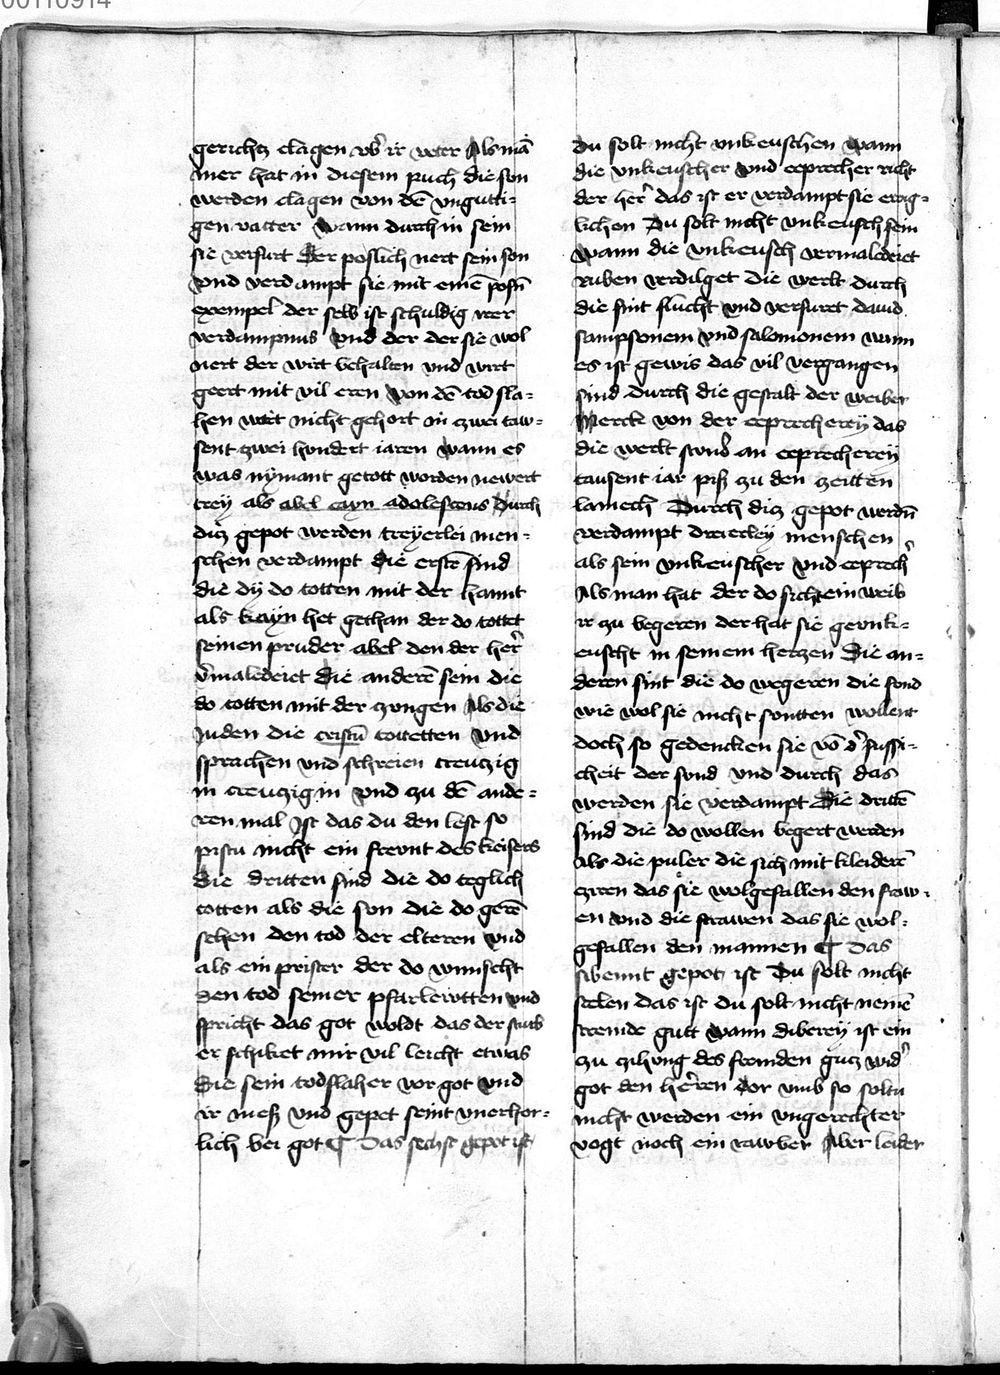 00110914
gerichtz clagen vb̄ ir veter Als mā
mer hat in diesem puch die son
werden clagen von dē vngutti-
gen vatter wann durch in sein
sie verfurt Der poslich nert sein son
vnd verdampt sie mit einē posn̄
exempel der selb ist schuldig irer
verdampnus vnd der der sie wol
nert der wirt behalten vnd wirt
geert mit vil eren von dē tod sla-
hen wirt nicht gehort in zwei taw-
sent zwei hundert iaren wann es
was nymant getott worden newert
trey als abel cayn adolescens Durch
ditz gepot werden treyerlei men-
schen verdampt die erstē sind
die dy do totten mit der hannt
als kayn het gethan der do tottet
seinen pruder abel den der her̄
v̄maledeiet Die anderē sein die
do totten mit der zungen Als die
Juden die cristū tottetten vnd
sprachen vnd schreien creutzig
in creutzig in vnd zu dē ande-
ren mal Ist das du den lest so
pistu nicht ein frewnt des keisers
Die dritten sind die do teglich
totten als die son die do gerē
sehen den tod der elteren vnd
als ein prister der do wunscht
den tod seiner pfarlewtten vnd
spricht das got woldt das der sturb
er schiket mir vil leicht etwas
Die sein todslaher vor got vnd
ir mess vnd gepet seint vnerhor-
lich bei got ¶ Das sechst gepot ist
Du solt nicht vnkeuschen wann
die vnkeuscher vnd eeprecher richt
der her̄ das ist er verdampt sie ewig-
lichen Du solt nicht vnkeusch sein
wann die vnkeusch vermaledeiet
ruben verdilget die werlt durch
die sint flucht vnd verfuret dauid
sampsonem vnd salomonem wann
es ist gewis das vil vergangen
sind durch die gestalt der weiber
Merck von der eeprecherey das
die werlt stund an eeprecherey
tausent iar piss zu den zeitten
lamech Durch ditz gepot werdn̄
verdampt dreierley menschen
als sein vnkeuscher vnd eeprech̄
Als man hat der do sicht ein weib
ir zu begeren der hat sie gevnk-
euscht in seinem hertzen Die an-
deren sint die do wegeren die sond
wie wol sie nicht suntten wollent
doch so gedencken sie vō d̄ sussi-
cheit der sond vnd durch das
werden sie verdampt Die drittē
sind die do wollen begert werden
als die puler die sich mit kleiderē
ziren das sie wolgefallen den fraw-
en vnd die frawen das sie wol-
gefallen den mannen ¶ Das
sibennt gepot ist Du solt nicht
stelen das ist du solt nicht nemē
fremde gutt wann diberey ist ein
zu zihung des fremden gutz wid̄
got den herren dor vmb so soltu
nicht werden ein vngerechter
vogt noch ein rawber Aber leider